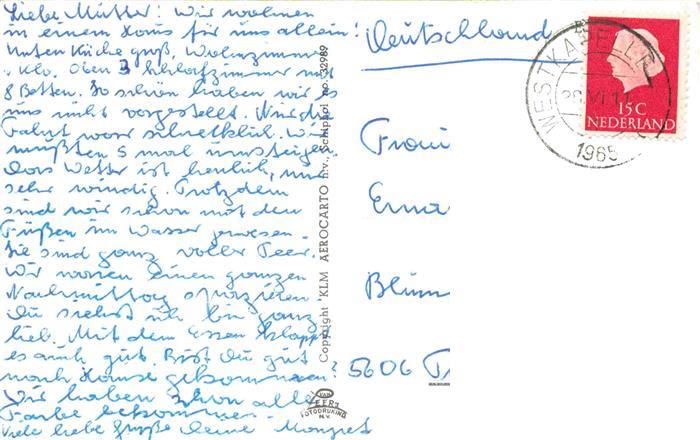 Liebe Mutter! Wir wohnen
in einem Haus für uns allein!
Unten Küche groß, Wohnzimmer
u. Klo. Oben 3 Schlafzimmer mit
8 Betten. So schön haben wir es
uns nicht vorgestellt. Nur die
Fahrt war schrecklich. Wir
mußten 5 mal umsteigen.
Das Wetter ist herrlich, nur
sehr windig. Trotzdem
sind wir schon mit den
Füßen im Wasser gewesen.
Sie sind ganz voller Teer.
Wir waren einen ganzen
Nachmittag spazieren
Du siehst ich bin ganz
lieb. Mit dem Essen klappt
es auch gut. Bist Du gut
nach Hause gekommen?
Wir haben schon alle
Farbe bekommen.
Viele liebe Grüße Deine
Copyright KLM AEROCARTO n.v., Schiphol no. 32989
VAN
FOTODRUKING
N.V.
Deutschland
WESTKAPELLE
1965
15C
NEDERLAND
Frau
Erna
Blum
5606